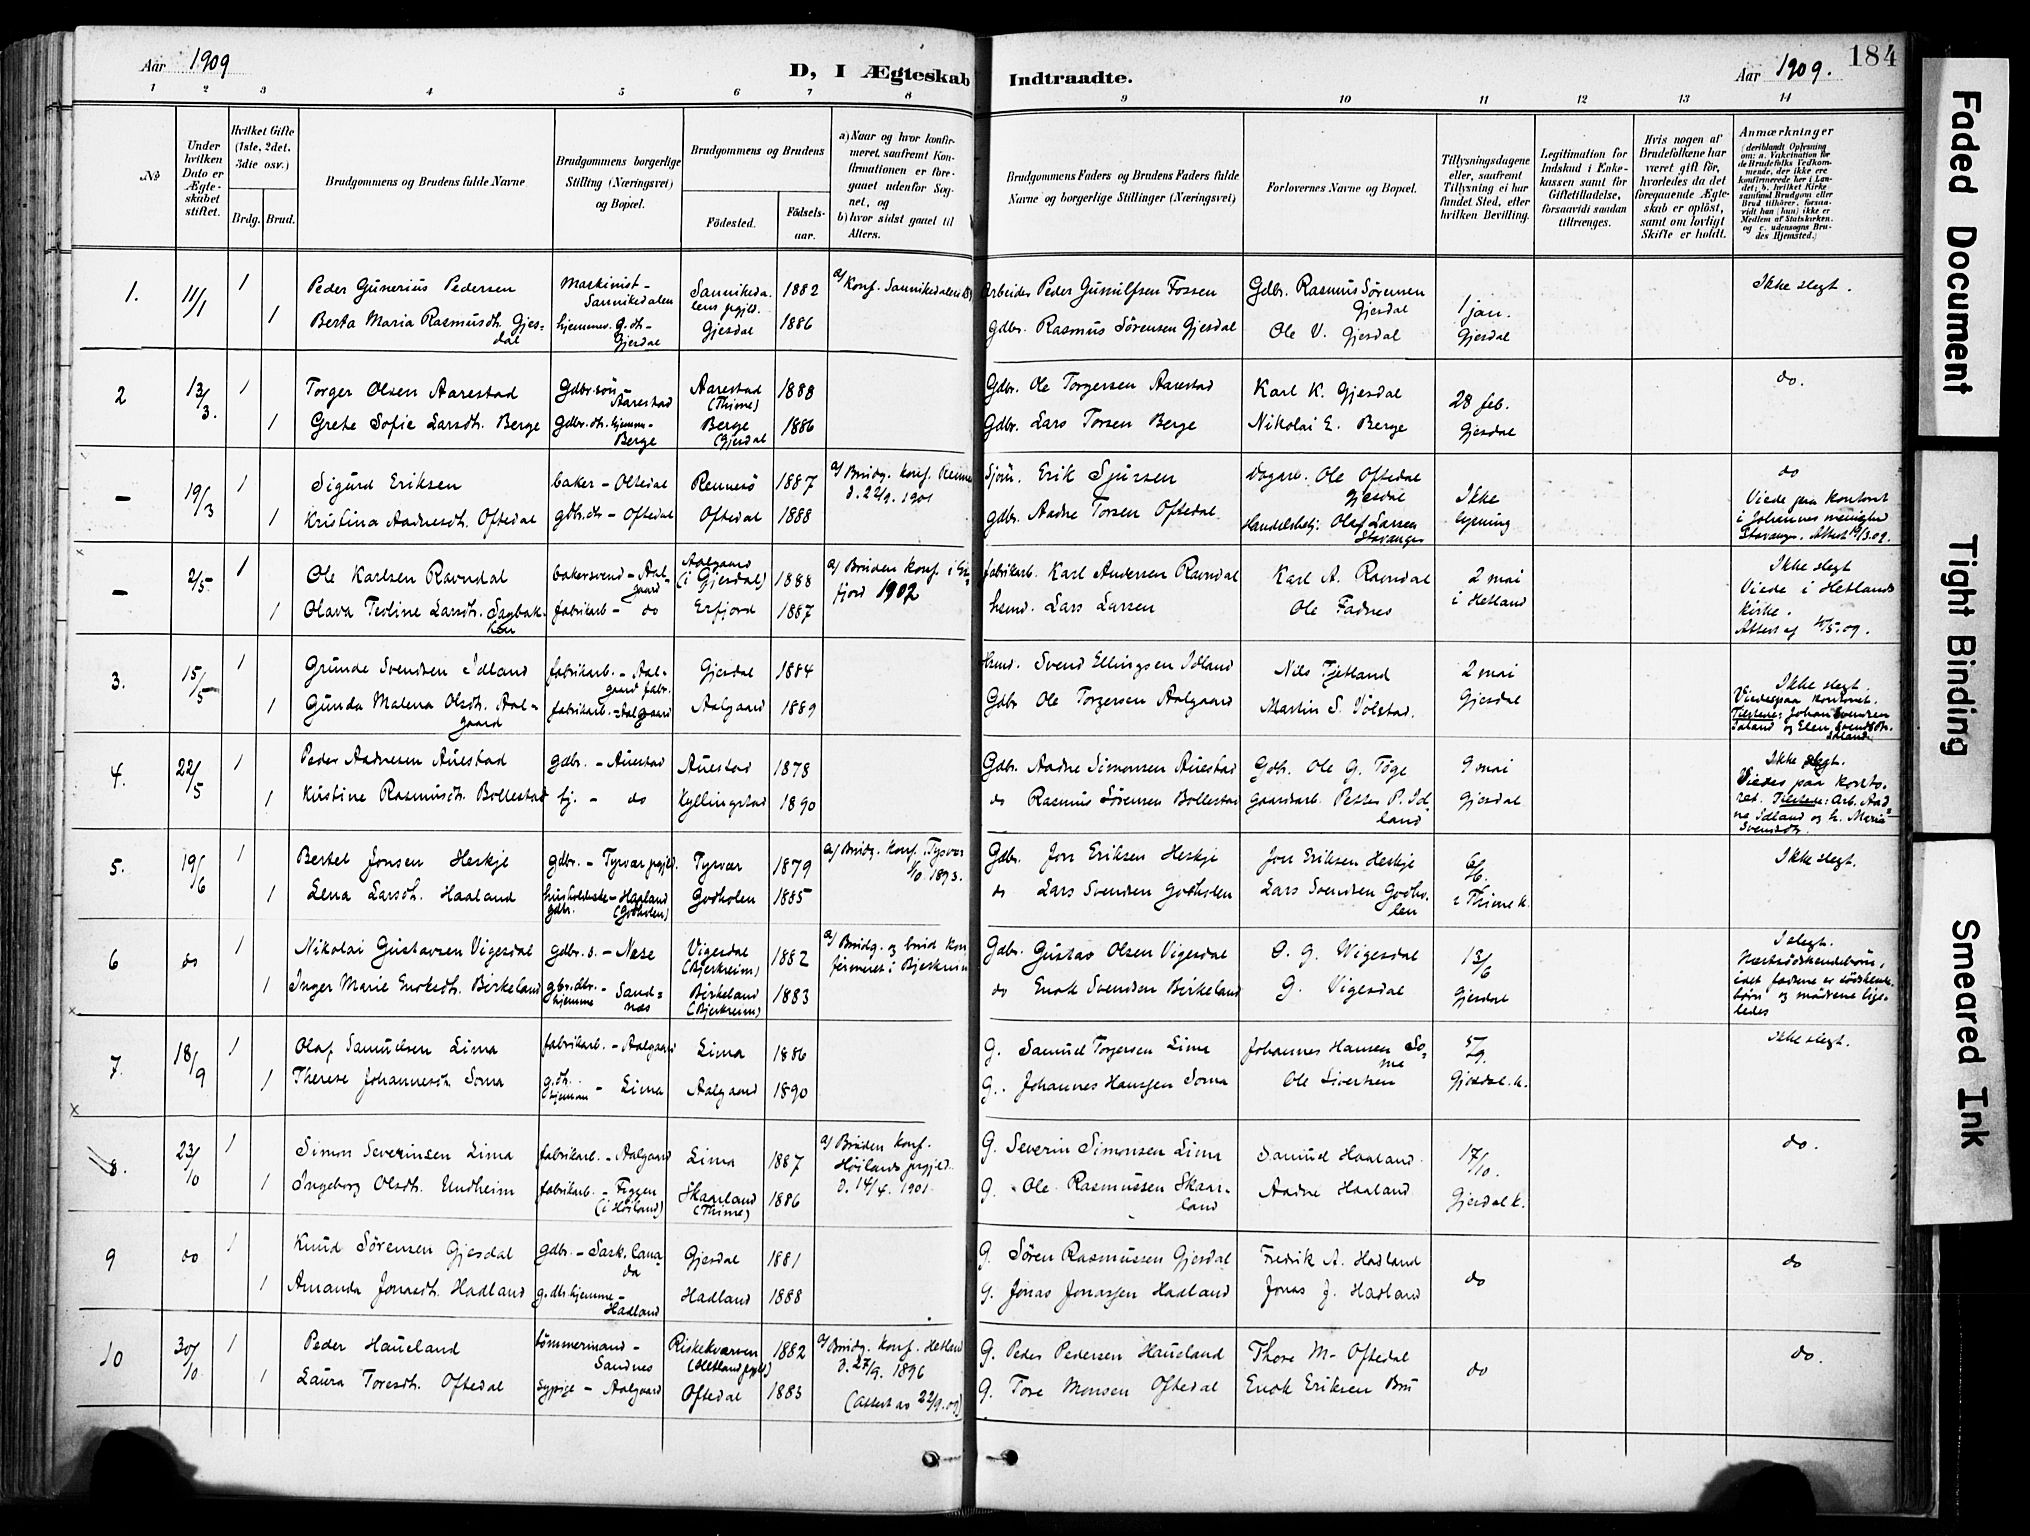 Aar 1909
D, I Ægteskab Indtraadte.
Aar 1909.
184
1 2 3 4 5 6 7 8 9 10 11 12 13 14
No
Under hvilken Dato er Ægteskabet stiftet.
Hvilket Gifte (1ste, 2det, 3die osv.)
Brdg. Brud.
Brudgommens og Brudens fulde Navne
Brudgommens borgerlige Stilling (Næringsvei) og Bopæl.
Brudgommens og Brudens
Födested. Födselsaar.
a) Naar og hvor konfirmeret, saafremt Konfirmationen er foregaaet udenfor Sognet, og
b) hvor sidst gaaet til Alters.
Brudgommens Faders og Brudens Faders fulde Navne og borgerlige Stillinger (Næringsvei)
Forlovernes Navne og Bopæl.
Tillysningsdagene eller, saafremt Tillysning ei har fundet Sted, efter hvilken Bevilling.
Legitimation for Indskud i Enkekassen samt for Giftetilladelse, forsaavidt saadan tiltrænges.
Hvis nogen af Brudefolkene har været gift för, hvorledes da det foregaaende Ægteskab er oplöst, samt om lovligt Skifte er holdt.
Anmærkninger
(deriblandt Oplysning om: a. Vakcination for de Brudefolks Vedkommende, der ikke ere konfirmerede her i Landet; b. hvilket Kirkesamfund Brudgom eller Brud tilhører, forsaavidt han (hun) ikke er Medlem af Statskirken, og c. udensogns Brudes Hjemsted.)
1. 11/1 1 Peder Gunerius Pedersen Maskinist - Sannikedalen Sannikedalens prgjld. 1882 a/ Konf. Sannikedalens Arbeider Peder Gunulfsen Fossen Gdbr. Rasmus Sørensen Gjesdal 1 jan. Gjesdal Ikke slegt.
1 Berta Maria Rasmusdt. Gjesdal hjemmev. g.dt. - Gjesdal Gjesdal 1886 gdbr. Rasmus Sørensen Gjesdal Ole V. Gjesdal
2 13/3. 1 Torger Olsen Aarestad Gdbr.søn Aarestad Aarestad (Thime) 1888 Gdbr. Ole Torgersen Aarestad Karl K. Gjesdal 28 feb. Gjesdal do.
1 Grete Sofie Larsdt. Berge Gdbr. dt. hjemme - Berge Berge (Gjesdal 1886 Gdbr. Lars Torsen Berge Nikolai E. Berge
- 19/3 1 Sigurd Eriksen baker - Oltedal Rennesö 1887 a/ Brudg. konf. Renne d. 22/9. 1901 Sjøm. Erik Sjursen Ole Oftedal Gjesdal Ikke lysning do Viede paa kontoret i Johannes menighed Stavanger. Attest 19/3.09.
1 Kristina Aadnesdt. Oftedal gdbr.dt - Oftedal Oftedal 1888 gdbr. Aadne Torsen Oftedal Handelsbetj: Olaf Larsen Stavanger
- 2/5. 1 Ole Karlsen Ravndal bakersvend - Aalgaard Aalgaard (i Gjesdal) 1888 a/ Bruden konf. i Erfjord 1902 fabrikarb. Karl Andersen Ravndal Karl A. Ravndal 2 mai i Hetland Ikke slegt Viede i Hetlands kirke. Attest af 4/5.09.
1 Olava Teoline Larsdt. Sagbakken fabrikarb - do Erfjord 1887 hsmd. Lars Larsen Ole Fadnes
3. 15/5 1 Grunde Svendsen Idland fabrikarb. - Aalgaard fabr. Gjesdal 1884 Hsmd. Svend Ellingsen Idland Nils Tjetland 2 mai Gjesdal Ikke slegt. Viedes paa kontoret. Tilstede: Johan Svendsen Idland og Elen Svendsdt. Idland
1 Gunda Malena Olsdt. Aalgaard fabrikarb. - Aalgaard Aalgaard 1889 Gdbr Ole Torgersen Aalgaard Martin S. Volstad.
4. 22/5 1 Peder Aadnesen Auestad gdbr. - Auestad Auestad 1878 Gdbr. Aadne Simonsen Auestad Gdbr. Ole G. Tøge 9 mai Gjesdal Ikke slegt. Viedes paa kontoret. Tilstede: Arb. Aadne Idland og h. Maria Svendsdt.
1 Kristine Rasmusdt. Bollestad hj. - do Kyllingstad 1890 do Rasmus Sörensen Bollestad gaardarb. Petter P. Idland
5. 19/6 1 Bertel Jonsen Heskje gdbr. - Tysvær prgjld. Tysvær 1879 a/ Brudg. konf. Tysvær 1893. Gdbr. Jon Eriksen Heskje Jon Eriksen Heskje 6/6. i Thime k. Ikke slegt.
1 Lena Larsdt. Haaland Haaland (Godholen) Godholen 1885 do Lars Svendsen Godholen Lars Svendsen Godholen
6 do 1 Nikolai Gustavsen Vigesdal gdbr. s. - Næse Vigesdal (Bjerkreim) 1882 a/ Brudg. og brud konfirmeret i Bjerkreim Gdbr. Gustav Olsen Vigesdal O. G. Vigesdal 13/6 Gjesdal I slegt. Næstsödskendebörn, idet fædrene er södskendebörn og mödrene ligeledes
1 Inger Marie Enoksdt. Birkeland gbr.dtr. hjemme - Sandnæs Birkeland (Bjerkreim) 1883 do Enok Svendsen Birkeland G. Vigesdal
7. 18/9 1 Olaf Samuelsen Lima fabrikarb. - Aalgaard Lima 1886 G. Samuel Torgersen Lima Johannes Hansen Some 5/9. Gjesdal. k. Ikke slegt.
1 Therese Johannesdt. Soma g.dt. hjemme - Lima Aalgaard 1890 G. Johannes Hanssen Soma Ole Sivertsen
8. 23/10 1 Simon Severinsen Lima fabrikarb. - Aalgaard Lima 1887 a/ Bruden konf. Höilands prgjld. d. 14/4. 1901. G. Severin Simonsen Lima Samuel Haaland 17/10. Gjesdal k. do.
1 Ingeborg Olsdt. Undheim fabrikarb. - Figgen (i Höiland) Skaarland (Thime) 1886 G. Ole Rasmussen Skaarland Aadne Haaland
9 do 1 Knud Sörensen Gjesdal gdbr. - Sask. Canada Gjesdal 1881 G. Sören Rasmussen Gjesdal Fredrik A. Hadland do do
1 Amanda Jonasdt. Hadland g.dtr hjemme - Hadland Hadland 1888 G. Jonas Jonassen Hadland Jonas J. Hadland
10 30/10 1 Peder Haueland tömmermand - Sandnes Riskekværven (Hetland prgjld) 1882 a/ Brudg. konf. Hetland d. 27/9. 1896 (Attest av 22/9.09) G. Peder Pedersen Haueland Thore M. Oftedal do do.
1 Laura Toresdt. Oftedal sypige - Aalgaard Oftedal 1883 G. Tore Monsen Oftedal Enok Eriksen Bru
Faded Document
Tight Binding
Smeared Ink